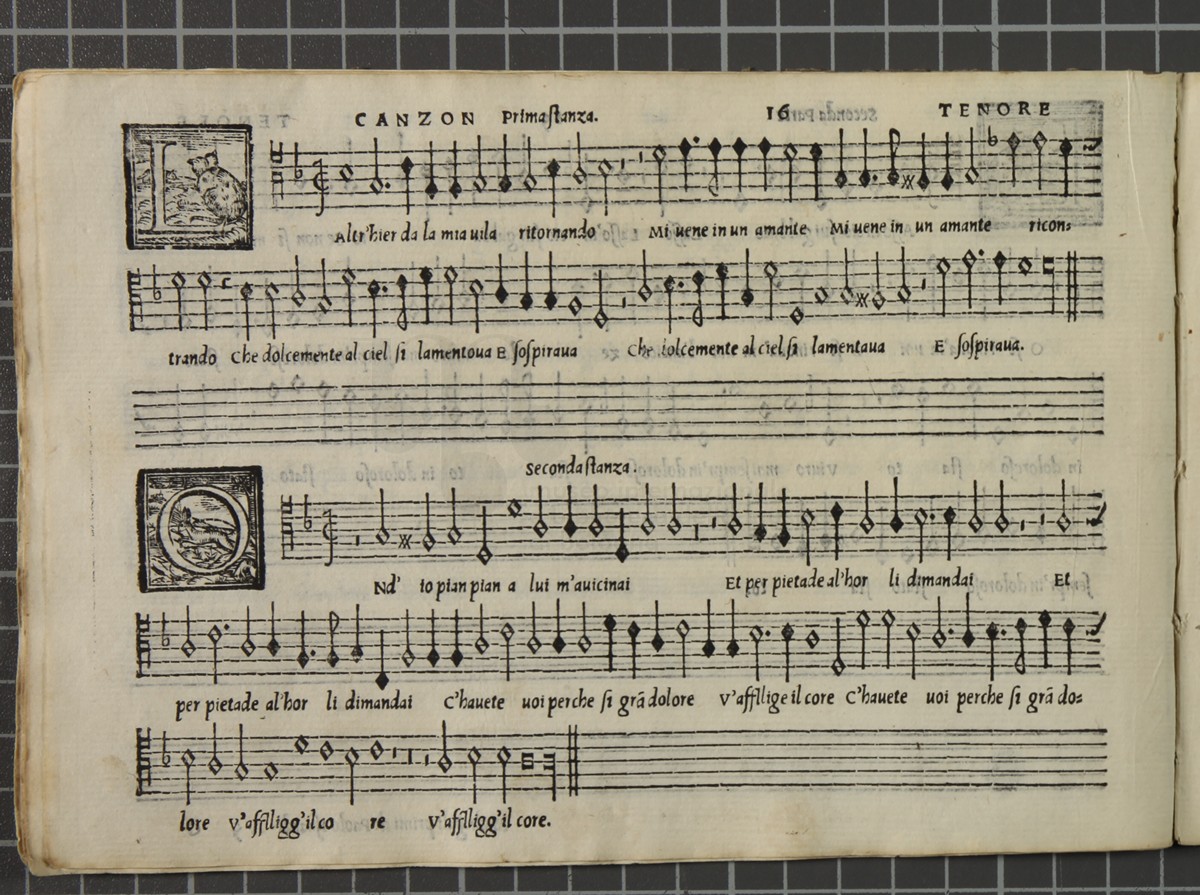 CANZON Prima stanza. 16 TENORE
L Altr'hier da la mia uila ritornando Mi uene in un amante Mi uene in un amante ricon=
trando Che dolcemente al ciel si lamentoua E sospiraua Che dolcemente al ciel si lamentaua E sospiraua.
Seconda stanza.
O Nd' io pian pian a lui m'auicinai Et per pietade al'hor li dimandai Et
per pietade al'hor li dimandai C'hauete uoi perche si grã dolore V'affllige il core C'hauete uoi perche si grã do=
lore V'afflligg'il co re V'afflligg'il core.